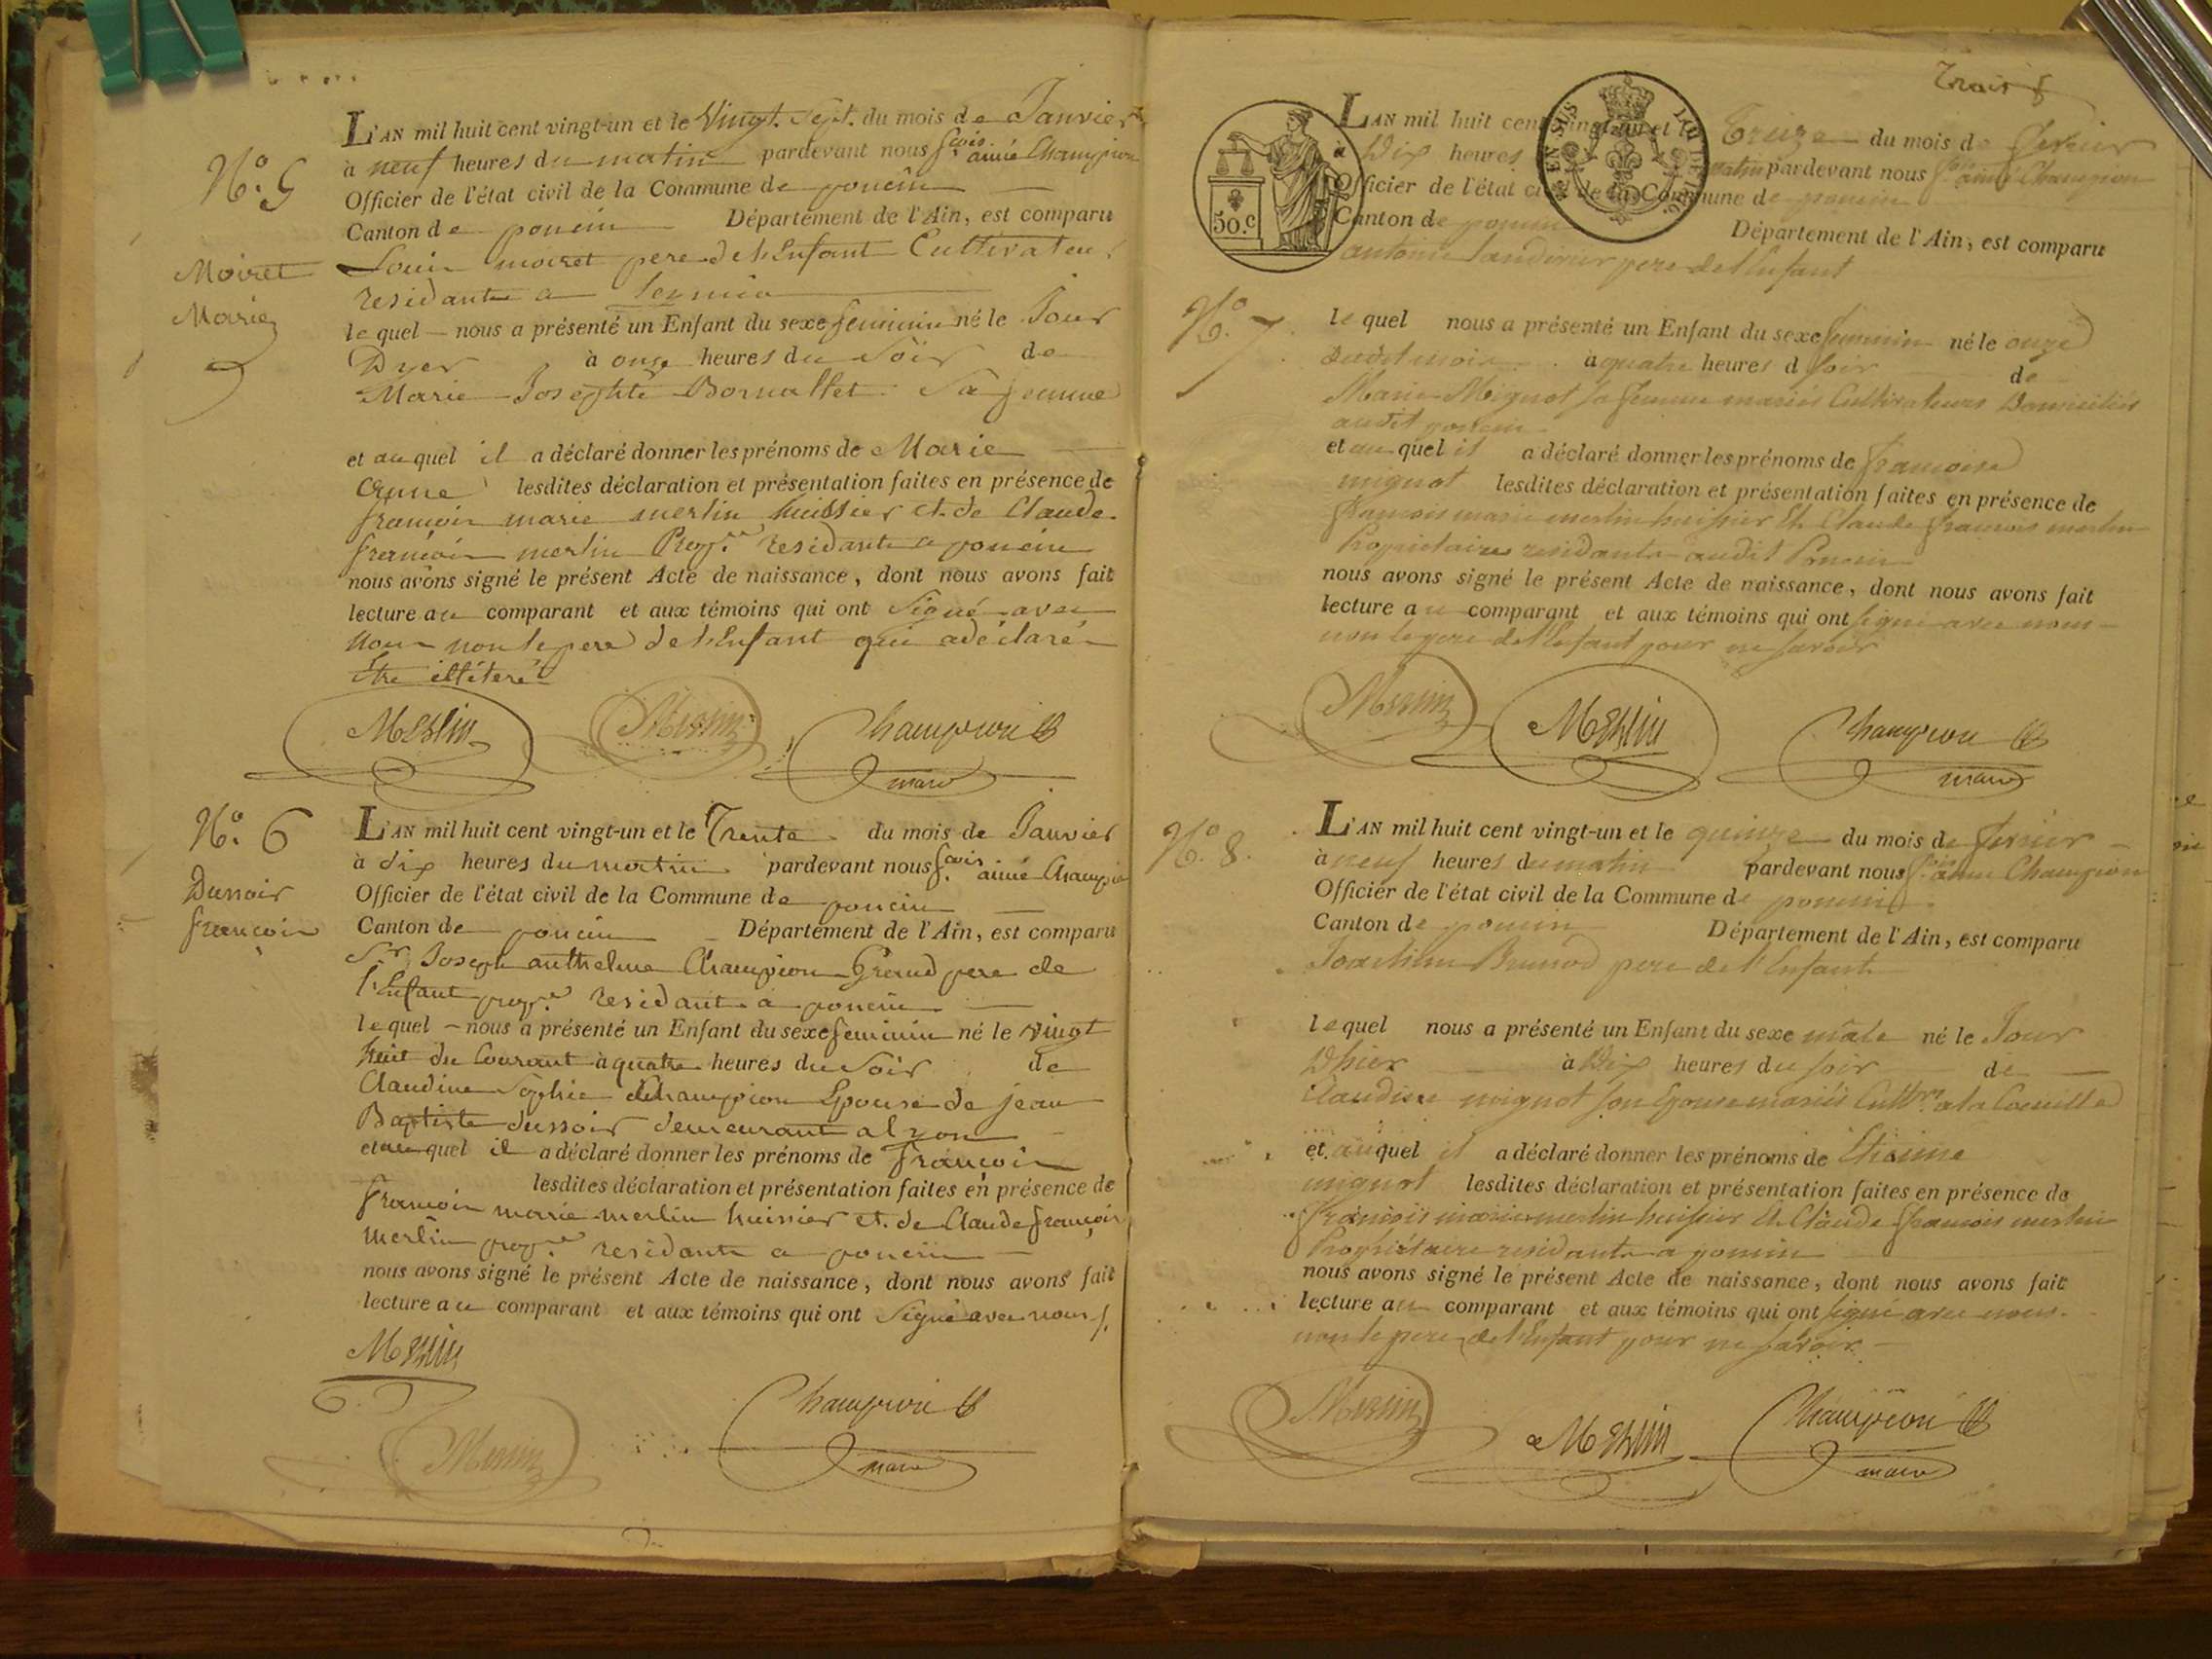 N.o 5
Moiret
Marie
L'AN mil huit cent vingt-un et le Vingt Sept. du mois de Janvier
à neuf heures du matin pardevant nous f.cois aimé Champion
Officier de l'état civil de la Commune de poncin
Canton de poncin Département de l'Ain, est comparu
Louis moiret pere de l'Enfant Cultivateur
residant a
le quel nous a présenté un Enfant du sexe feminin né le Jour
Dyer à onze heures du Soir de
Marie Josephte Bornallet Sa femme
et au quel il a déclaré donner les prénoms de Marie
lesdites déclaration et présentation faites en présence de
francois marie merlin huissier et de Claude
francois merlin Prop.re residants a poncin
nous avons signé le présent Acte de naissance, dont nous avons fait
lecture au comparant et aux témoins qui ont Signé avec
Nous non le pere de l'Enfant qui a déclaré
être illiteré
Merlin Merlin Champion
maire
N.o 6
Dussoir
francois
L'AN mil huit cent vingt-un et le Trente du mois de Janvier
à dix heures du matin pardevant nous f.cois aimé Champion
Officier de l'état civil de la Commune de poncin
Canton de poncin Département de l'Ain, est comparu
S.r Joseph anthelme Champion Grand pere de
l'Enfant prop.re residant a poncin
le quel nous a présenté un Enfant du sexe feminin né le vingt
huit du Courant à quatre heures du Soir de
Claudine Sophie Champion Epouse de jean
Baptiste dussoir demeurant a Lyon
et au quel il a déclaré donner les prénoms de francois
lesdites déclaration et présentation faites en présence de
francois marie merlin huissier et de Claude francois
merlin prop.re residants a poncin
nous avons signé le présent Acte de naissance, dont nous avons fait
lecture au comparant et aux témoins qui ont Signé avec nous
Merlin
Champion
Merlin
maire
Trois
50.C
EN SUS
N.o 7
L'AN mil huit cent vingt-un et le Treize du mois de fevrier
à Dix heures matin pardevant nous f.cois aimé Champion
Officier de l'état civil de la Commune de poncin
Canton de poncin Département de l'Ain, est comparu
antoine pere de l'Enfant
le quel nous a présenté un Enfant du sexe feminin né le onze
dudit mois à quatre heures d soir de
Marie Mignot sa femme mariés Cultivateurs Domiciliés
audit poncin
et au quel il a déclaré donner les prénoms de francoise
mignot lesdites déclaration et présentation faites en présence de
francois marie merlin huissier Et Claude francois merlin
Propriétaires residants audit Poncin
nous avons signé le présent Acte de naissance, dont nous avons fait
lecture au comparant et aux témoins qui ont signé avec nous
non le pere de l'Enfant pour ne savoir
Merlin Merlin Champion
maire
N.o 8.
L'AN mil huit cent vingt-un et le quinze du mois de fevrier
à neuf heures du matin pardevant nous f.cois aimé Champion
Officier de l'état civil de la Commune de poncin
Canton de poncin Département de l'Ain, est comparu
Joachim Brunod pere de l'Enfant
le quel nous a présenté un Enfant du sexe mâle né le Jour
Dhier à Dix heures du soir de
Claudine mignot son Epouse mariés Cult.rs
et auquel il a déclaré donner les prénoms de
mignot lesdites déclaration et présentation faites en présence de
francois marie merlin huissier Et Claude francois merlin
Propriétaire residants a poncin
nous avons signé le présent Acte de naissance, dont nous avons fait
lecture au comparant et aux témoins qui ont signé avec nous
non le pere de l'Enfant pour ne savoir
Merlin Merlin Champion
maire